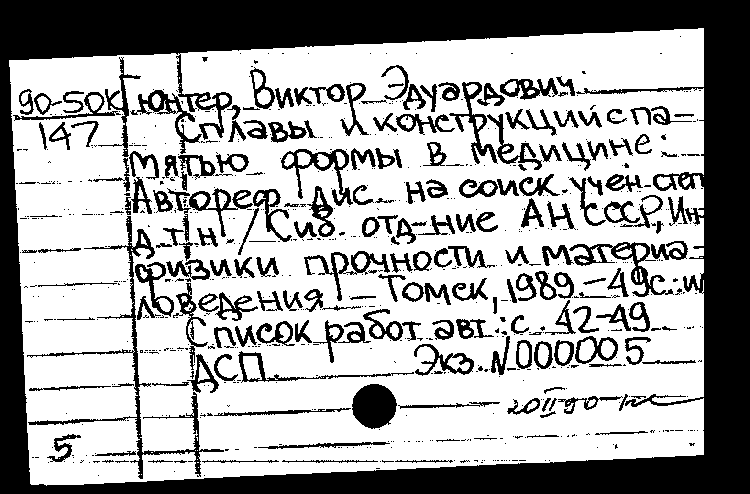 90-50К Гюнтер, Виктор Эдуардович.
147 Сплавы и конструкции с па-
мятью формы в медицине:
Автореф. дис. на соиск. учен. степ
д.т.н. / Сиб. отд-ние АН СССР, Ин-
физики прочности и материа-
ловедения. – Томск, 1989. – 49с.: и
Список работ авт.: с. 42-49
ДСП. Экз. N000005
20 II 90
5